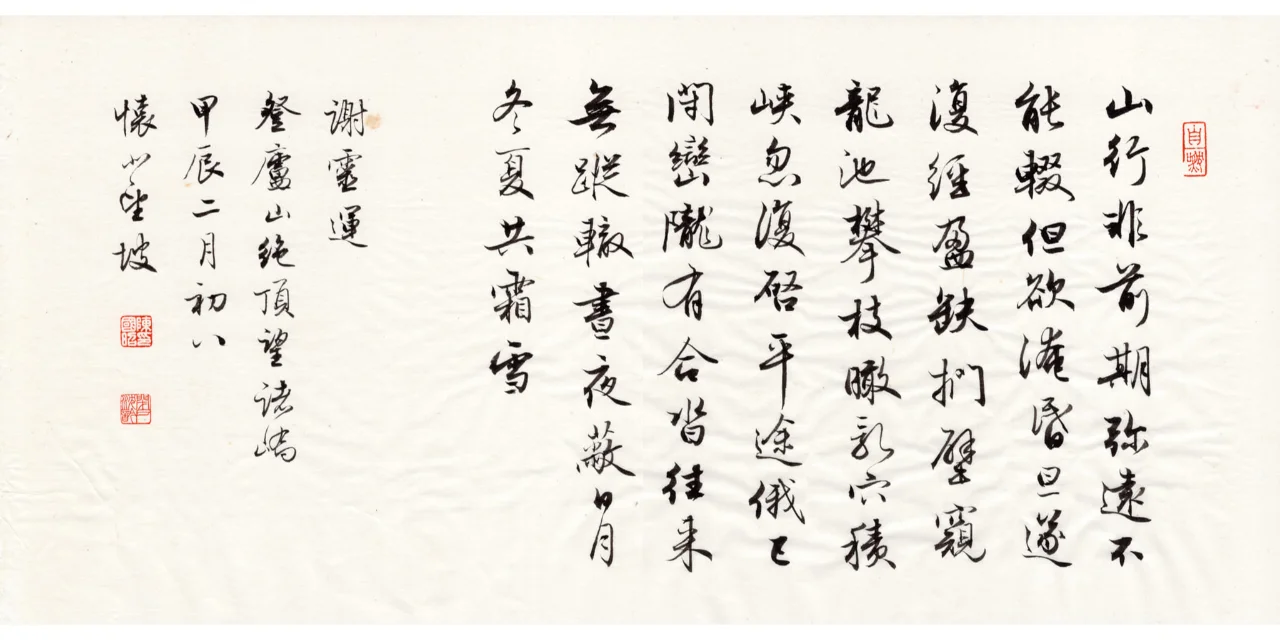 山行非前期弥遠不
能輟但欲淹昏旦遂
復經盈缺捫壁窺
龍池攀枝瞰乳穴積
峽忽復启平途俄已
閇巒隴有合沓往来
無蹤轍晝夜蔽日月
冬夏共霜雪
謝靈運
登廬山絕頂望諸嶠
甲辰二月初八
懷坡